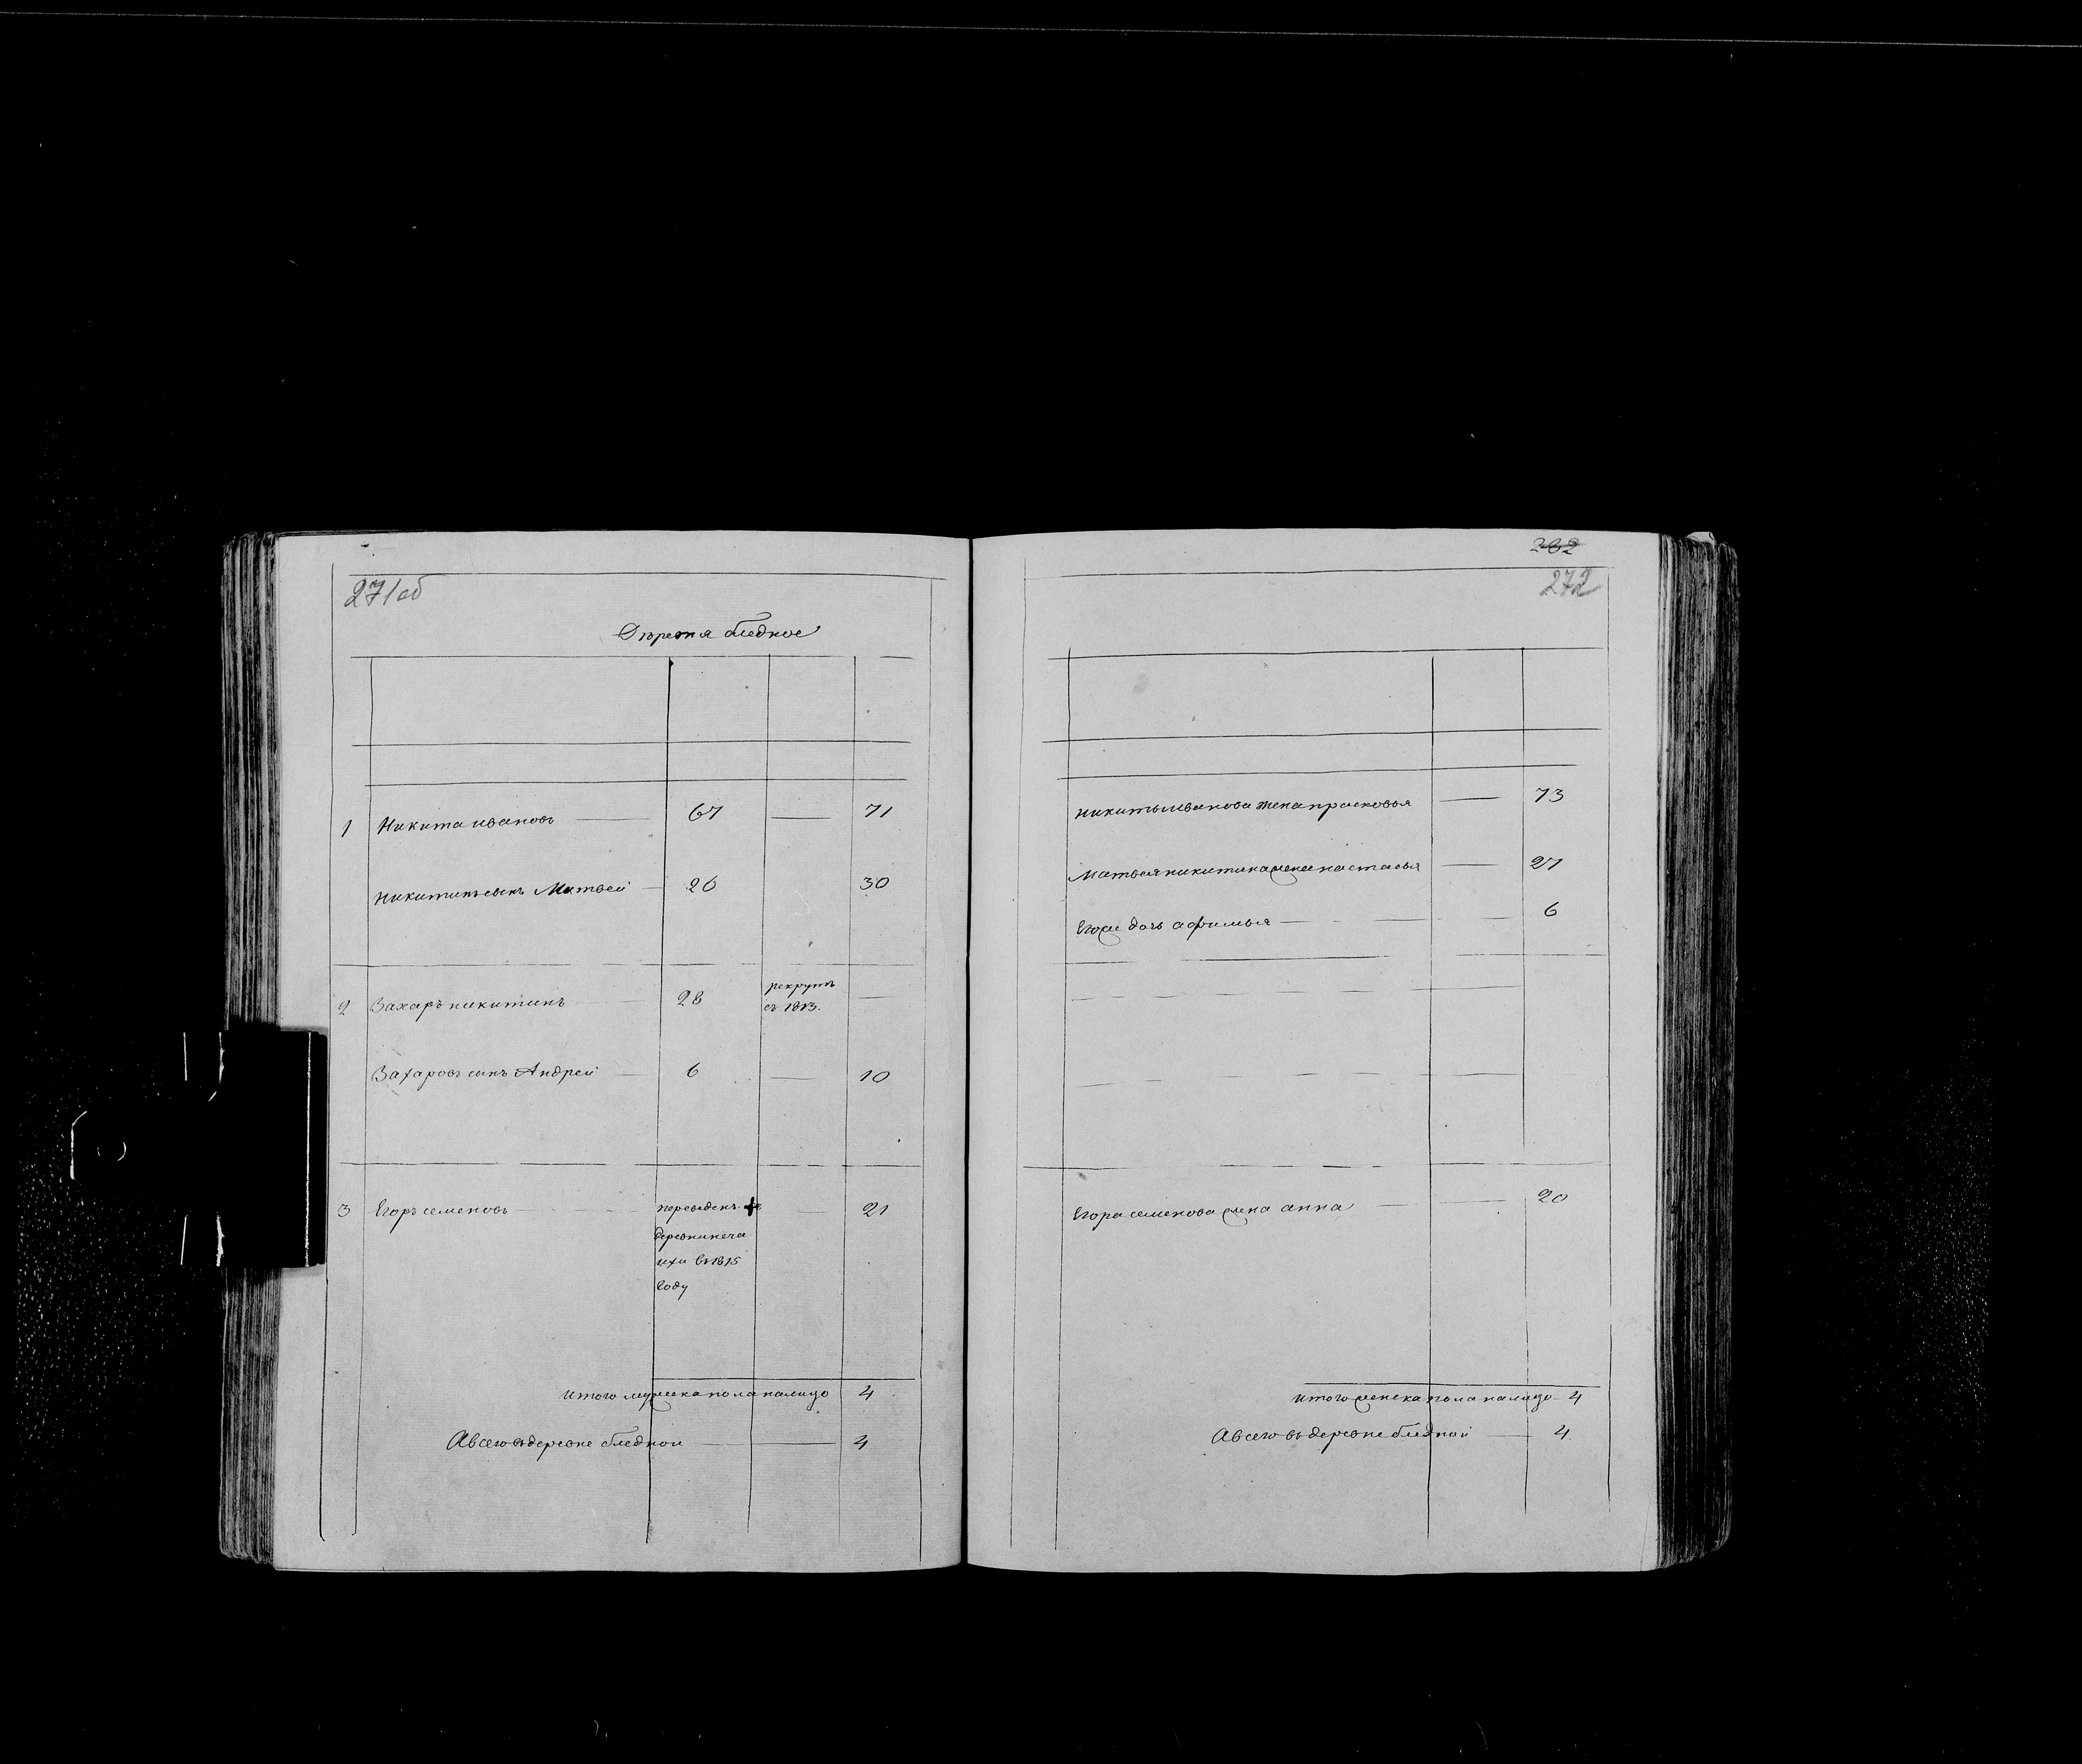 271об
Деревня бледное
1 Никита ивановъ 67 71
никитинъ сынъ Матвей 26 30
2 Захаръ никитинъ 28 рекрутъ
съ 1813.
Захаровъ сынъ Андрей 6 10
3 Егоръ семеновъ переведенъ 21
деревни неча
ихи въ 1815
году
итого мужеска пола налицо 4
А всего въ деревне бледной 4
232
272
никиты иванова жена прасковья 73
Матвея никитина жена настасья 27
Егоже дочь афимья 6
Егора семенова жена анна 20
итого женска пола налицо 4
А всего въ деревне бледной 4